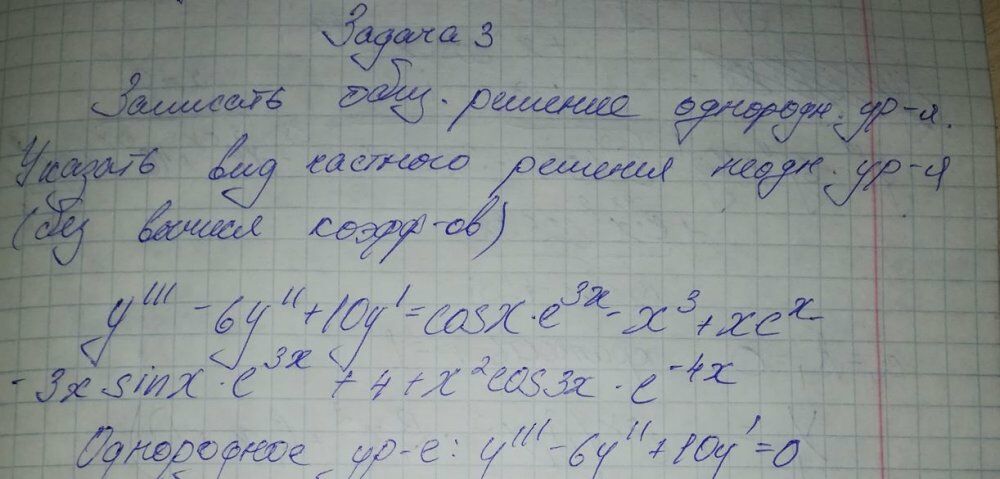 Задача 3
Записать общ. решение однородн. ур-я.
Указать вид частного решения неодн. ур-я
(без вычисл коэфф-ов)
y''' - 6y'' + 10y' = cosx · e^{3x} - x³ + xe^x -
- 3x sinx · e^{3x} + 4 + x² cos3x · e^{-4x}
Однородное ур-е: y''' - 6y'' + 10y' = 0